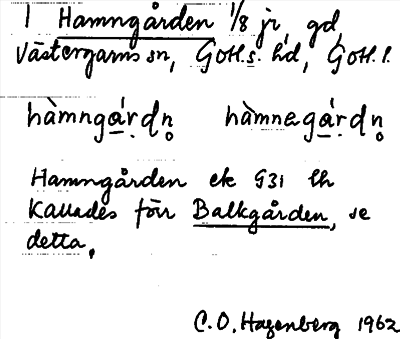 1 Hamngården 1/8 jr, gd,
Västergarns sn, Gotl.s. hd, Gotl. l.
hàmngá̱ṛdn̥ hàmnegá̱ṛdn̥
Hamngården ek 931 lh
Kallades förr Balkgården, se
detta.
C.O. Hagenberg 1962